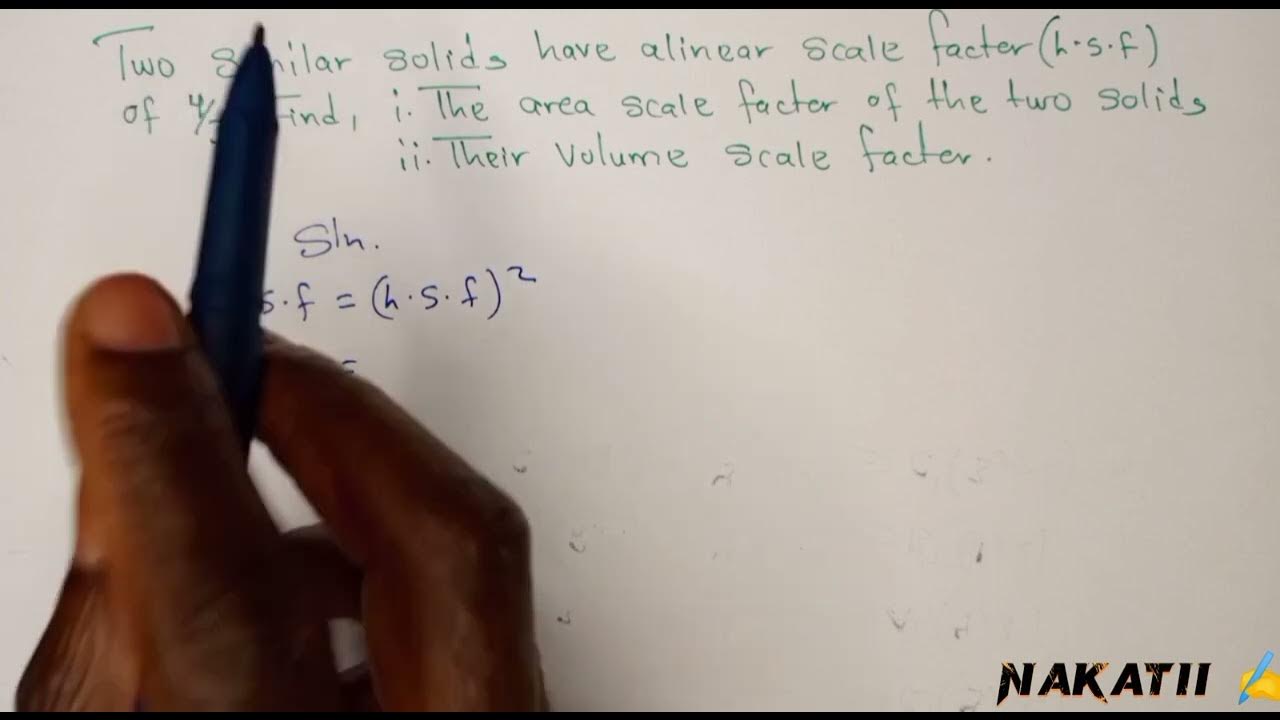 Two similar solids have a linear scale factor (h.s.f)
of 4/ Find, i. The area scale factor of the two solids
ii. Their volume scale factor.
Sln.
s.f = (h.s.f)²
=
NAKATII